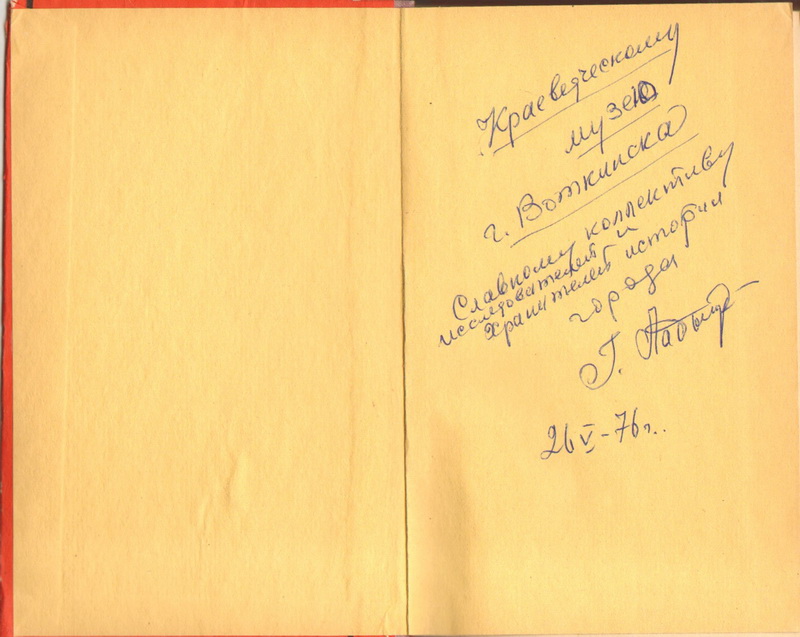 Краеведческому
музею
г. Воткинска
Славному коллективу
исследователей и
хранителей истории
города
Г.
26 V - 76 г.